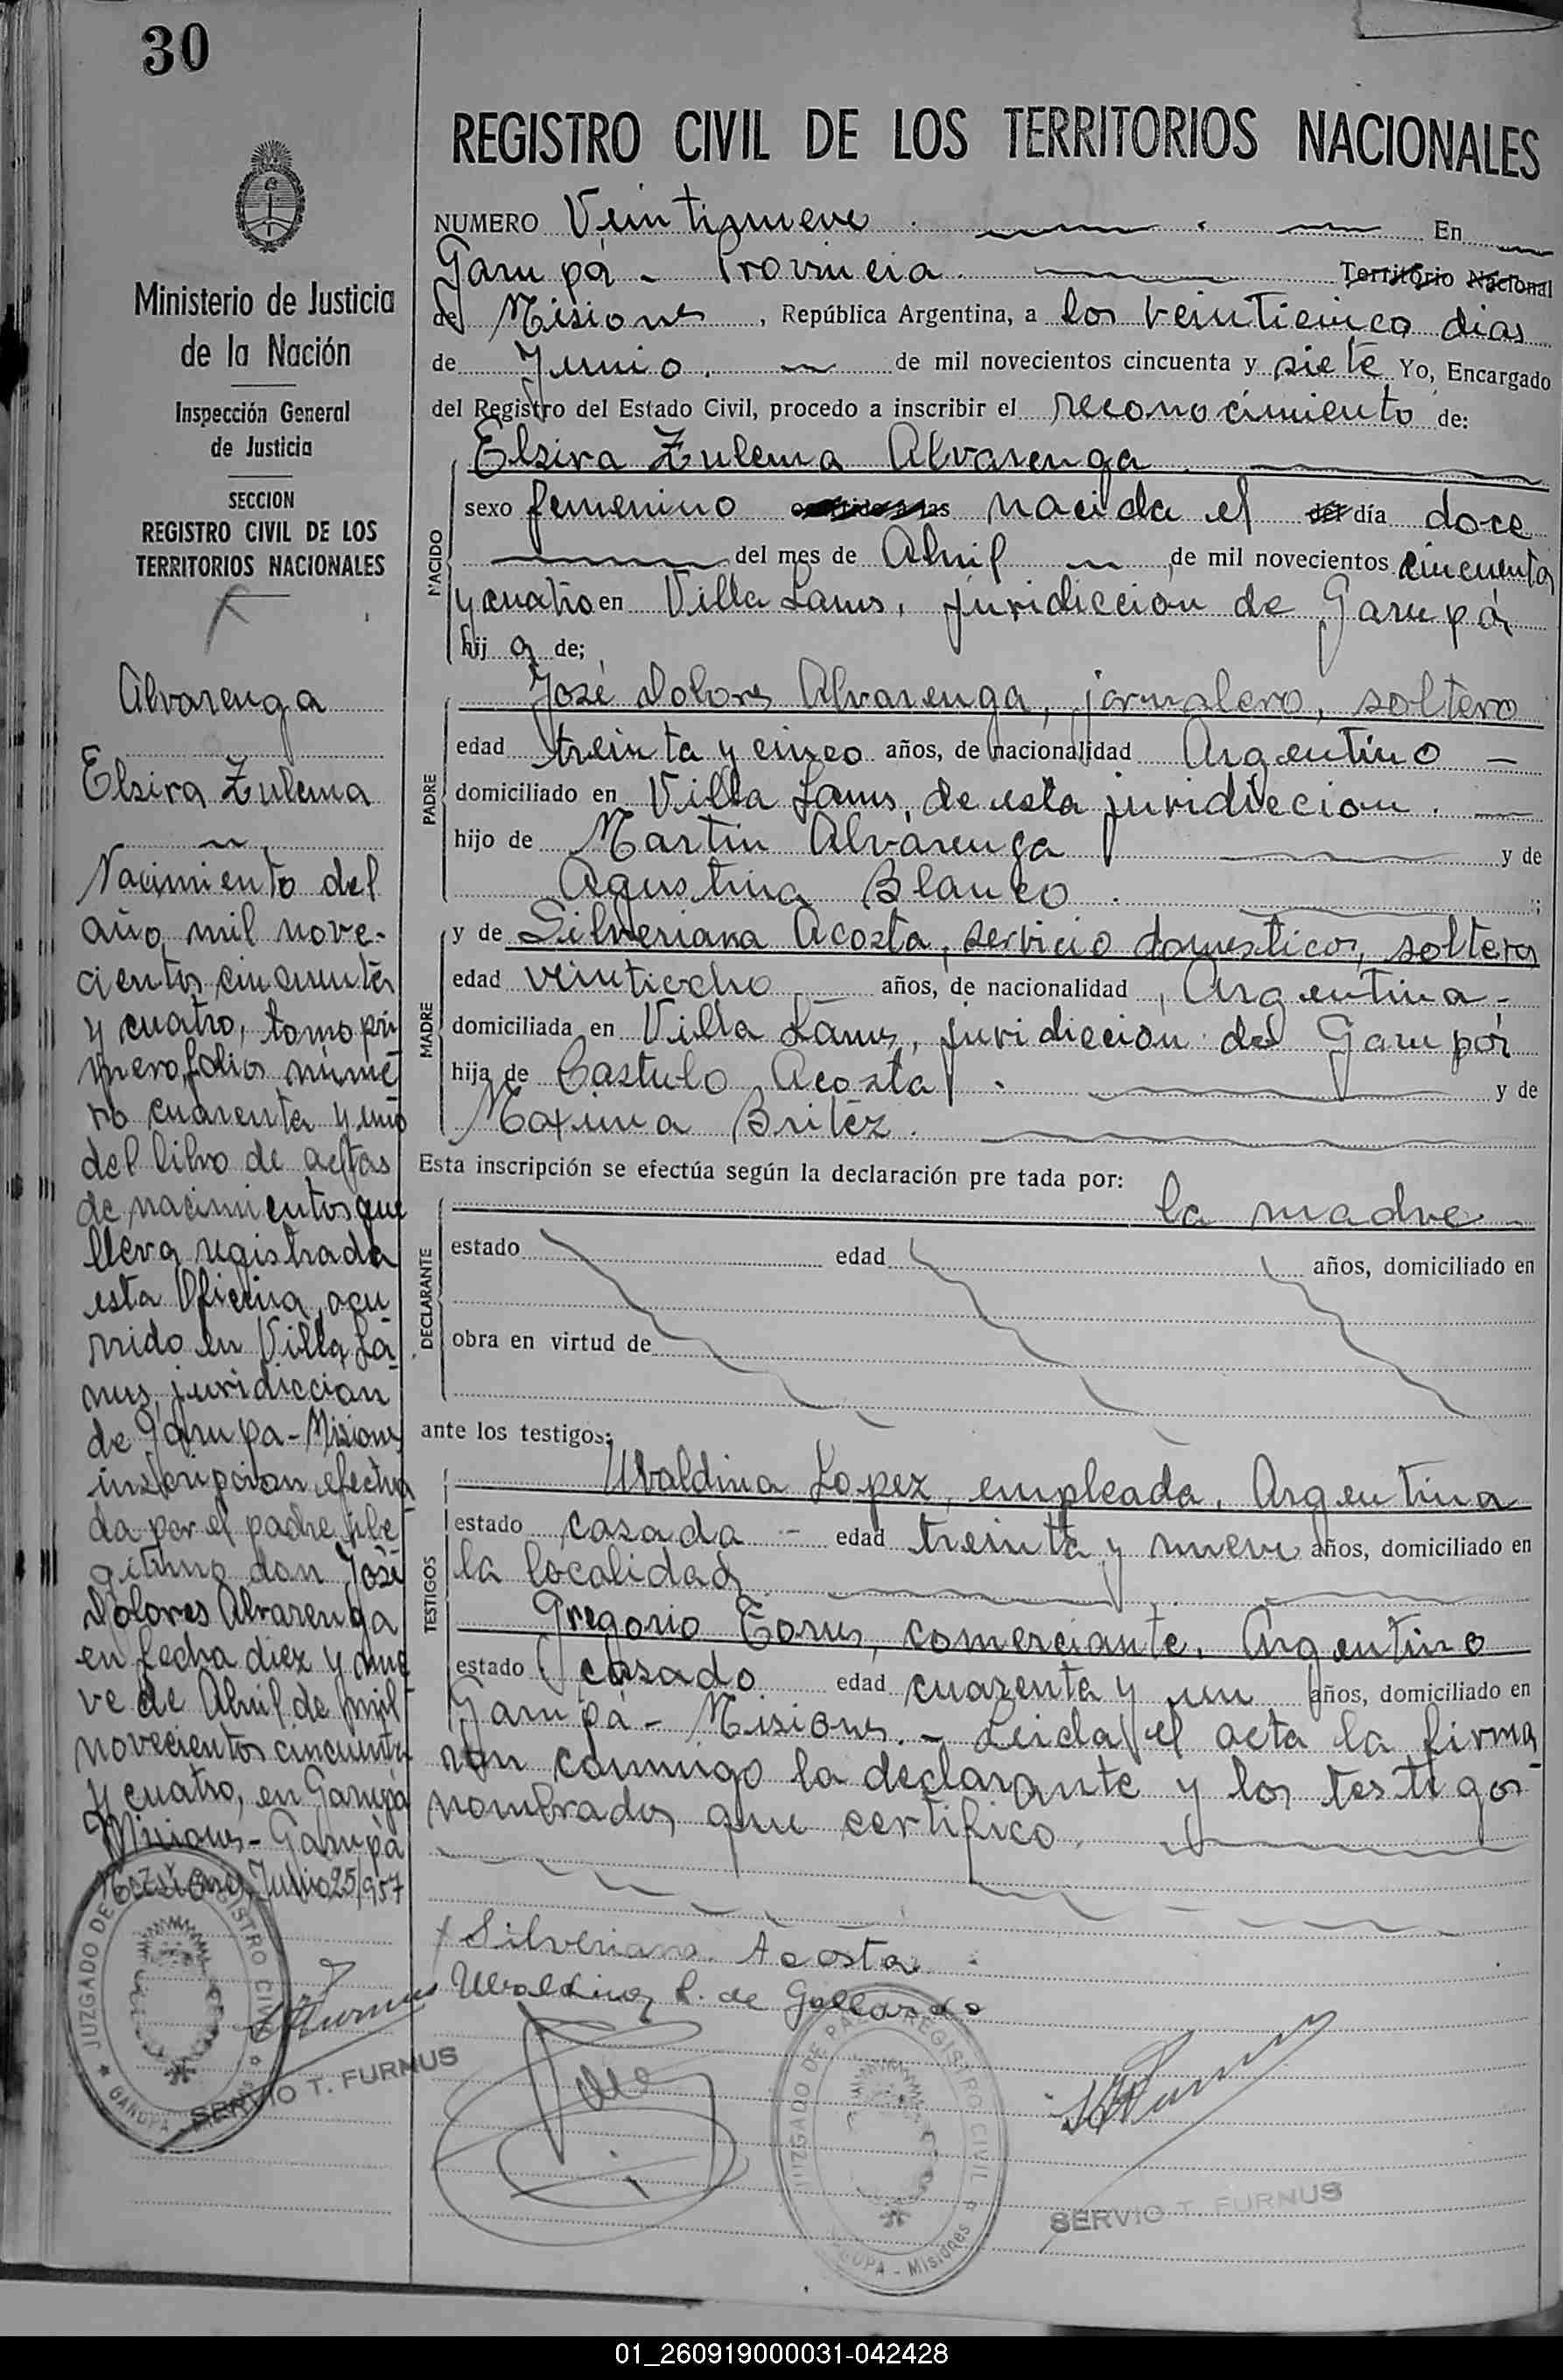 30
Ministerio de Justicia
de la Nación
Inspección General
de Justicia
SECCION
REGISTRO CIVIL DE LOS
TERRITORIOS NACIONALES
Alvarenga
Elsira Zulema
Nacimiento del
año mil nove-
cientos cincuenta
y cuatro, tomo pri
mero, folio núme
ro cuarenta y uno
del libro de actas
de nacimientos que
lleva registrada
esta Oficina, ocu
rrido en Villa La-
nus, juridiccion
de Garupa - Misiones
inscripcion efectua
da por el padre ile
gitimo don José
Dolores Alvarenga
en fecha diez y nue
ve de Abril de mil
novecientos cincuenta
y cuatro, en Garupá
Misiones - Garupá
Misiones, Junio 25/957
JUZGADO DE PAZ Y REGISTRO CIVIL
GARUPA - MISIONES
SERVIO T. FURNUS
REGISTRO CIVIL DE LOS TERRITORIOS NACIONALES
NUMERO Veintinueve En
Garupá - Provincia Territorio Nacional
de Misiones, República Argentina, a los veinticinco dias
de Junio. de mil novecientos cincuenta y siete Yo, Encargado
del Registro del Estado Civil, procedo a inscribir el reconocimiento de:
NACIDO
Elsira Zulema Alvarenga
sexo femenino ocurrido a las nacida el del día doce
del mes de Abril de mil novecientos cincuenta
y cuatro en Villa Lanus, juridiccion de Garupá
hij a de;
PADRE
José Dolores Alvarenga, jornalero, soltero
edad treinta y cinco años, de nacionalidad Argentino -
domiciliado en Villa Lanus, de esta juridiccion.
hijo de Martin Alvarenga y de
Agustina Blanco.
MADRE
y de Silveriana Acosta, servicio domestico, soltera
edad veintiocho años, de nacionalidad, Argentina -
domiciliada en Villa Lanus, juridiccion de Garupá
hija de Castulo Acosta. y de
Maxima Britéz.
Esta inscripción se efectúa según la declaración pre tada por:
DECLARANTE
la madre -
estado edad años, domiciliado en
obra en virtud de
ante los testigos:
TESTIGOS
Ubaldina Lopez, empleada, Argentina
estado casada - edad treinta y nueve años, domiciliado en
la localidad
Gregorio Torres, comerciante, Argentino
estado casado edad cuarenta y un años, domiciliado en
Garupá - Misiones. - Leida el acta la firma
ron conmigo la declarante y los testigos
nombrados que certifico.
Silveriana Acosta
Ubaldina L. de Gallardo
JUZGADO DE PAZ Y REGISTRO CIVIL
GARUPA - Misiones
SERVIO T. FURNUS
01_260919000031-042428